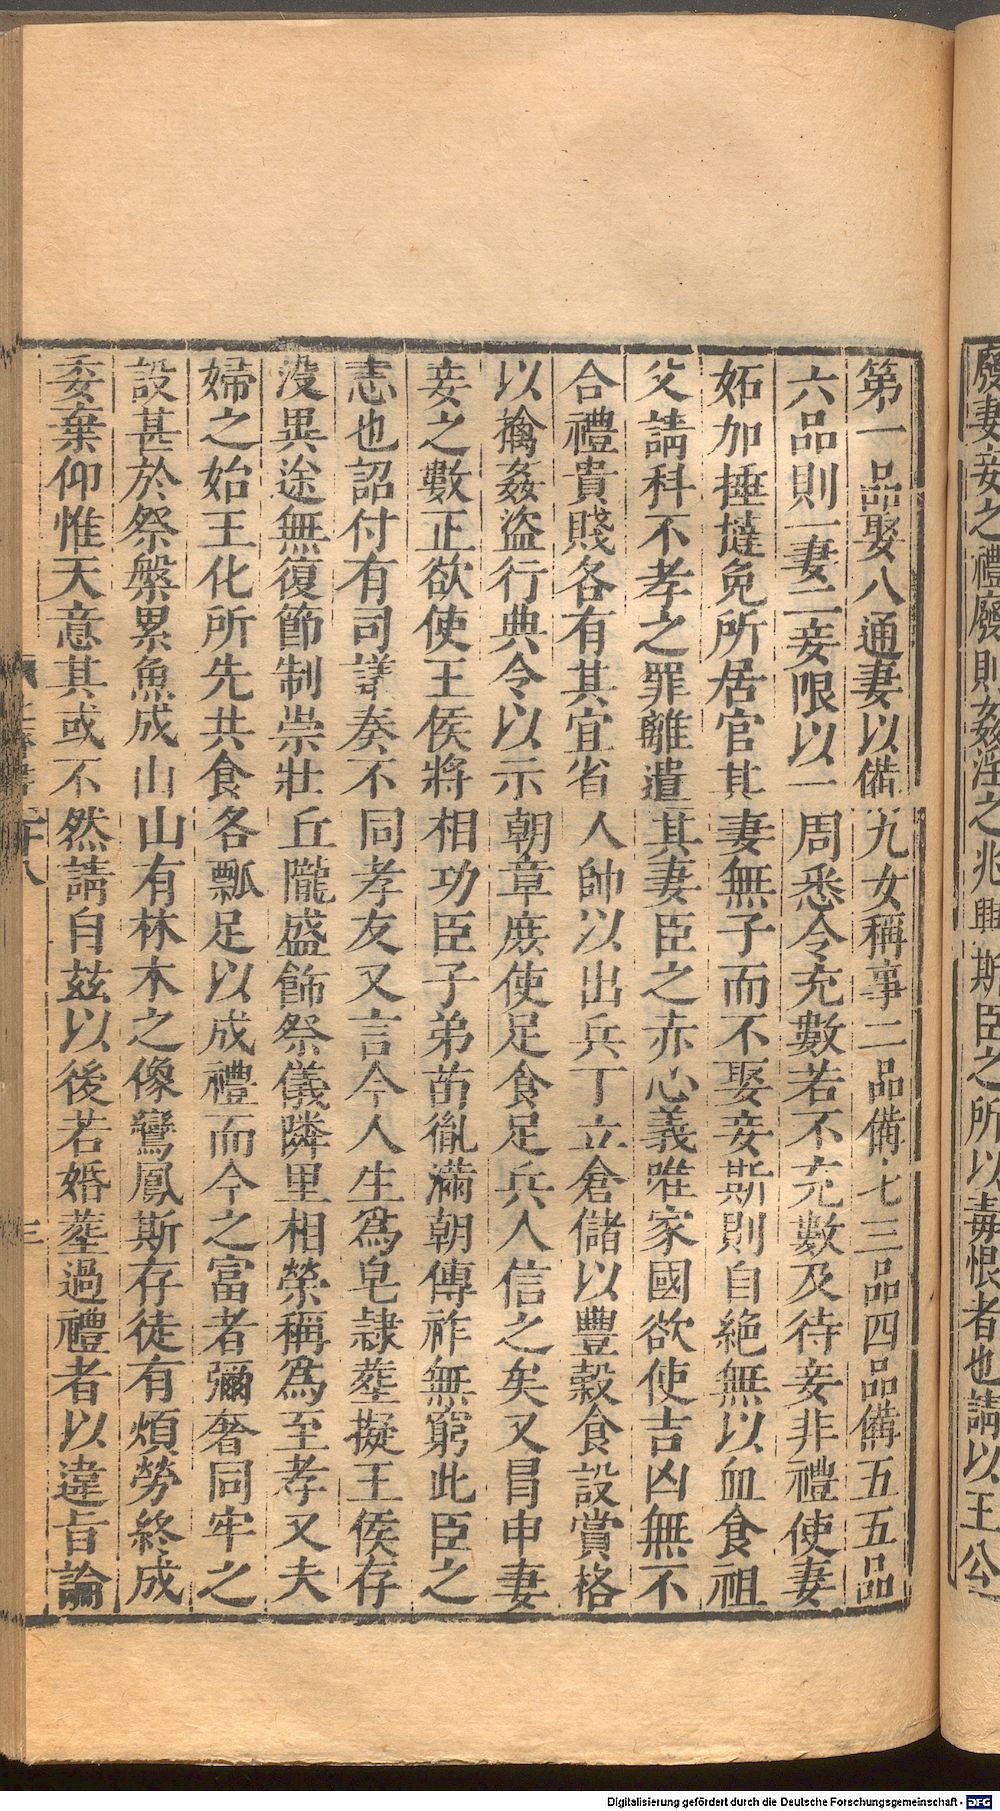 廢妻妾之禮廢則姦淫之兆興斯臣之所以毒恨者也請以王公
第一品娶八通妻以備九女稱事二品備七三品四品備五五品
六品則一妻二妾限以一周悉令充數若不充數及待妾非禮使妻
妬加捶撻免所居官其妻無子而不娶妾斯則自絶無以血食祖
父請科不孝之罪離遣其妻臣之赤心義唯家國欲使吉凶無不
合禮貴賤各有其宜省人帥以出兵丁立倉儲以豐穀食設賞格
以擒姦盜行典令以示朝章庶使足食足兵人信之矣又冒申妻
妾之數正欲使王侯將相功臣子弟苗胤滿朝傳祚無窮此臣之
志也詔付有司議奏不同孝友又言今人生爲皂隸葬擬王侯存
沒異途無復節制崇壯丘隴盛飾祭儀隣里相榮稱爲至孝又夫
婦之始王化所先共食各瓢足以成禮而今之富者彌奢同牢之
設甚於祭槃累魚成山山有林木之像鸞鳳斯存徒有煩勞終成
委棄仰惟天意其或不然請自茲以後若婚葬過禮者以違旨論
三
Digitalisierung gefördert durch die Deutsche Forschungsgemeinschaft - DFG